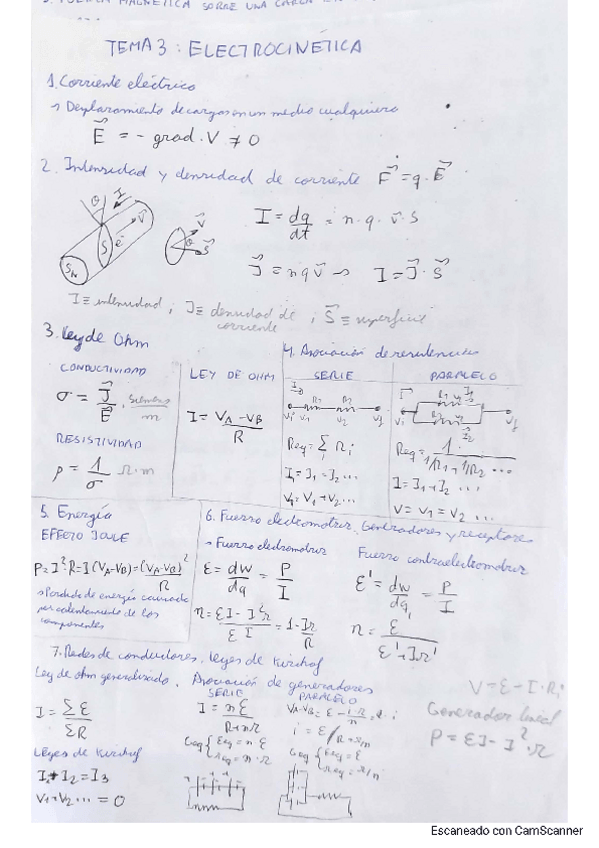 TEMA 3: ELECTROCINÉTICA
1. Corriente eléctrica
→ Desplazamiento de cargas en un medio cualquiera
E⃗ = - grad. V ≠ 0
2. Intensidad y densidad de corriente F⃗ = q · E⃗
I = dq/dt = n · q · v⃗ · S
J⃗ = n q v⃗ → I = J⃗ · S⃗
I ≡ intensidad ; J ≡ densidad de corriente ; S⃗ ≡ superficie
3. Ley de Ohm
CONDUCTIVIDAD
σ = J⃗/E⃗ , siemens/m
RESISTIVIDAD
ρ = 1/σ Ω·m
LEY DE OHM
I = VA - VB / R
4. Asociación de resistencias
SERIE
Req = Σ Ri
I1 = I1 = I2 ...
V1 = V1 + V2 ...
PARALELO
Req = 1 / 1/R1 + 1/R2 ...
I = I1 + I2 ...
V = V1 = V2 ...
5. Energía
EFECTO JOULE
P = I² · R = I (VA - VB) = (VA - VB)² / R
→ Perdida de energía causada
por calentamiento de los
componentes
6. Fuerza electromotriz. Generadores y receptores
→ Fuerza electromotriz
ε = dw/dq = P/I
η = εI - I²r / εI = 1 - Ir/
Fuerza contraelectromotriz
ε' = dw/dq = P/I
η = ε / ε' + Ir'
7. Redes de conductores. Leyes de Kirchof
Ley de ohm generalizada.
I = Σε / ΣR
Leyes de Kirchof
I1 + I2 = I3
V1 + V2 ... = 0
Asociación de generadores
SERIE
I = nε / R + nr
Geq { εeq = n · ε
req = n · r
PARALELO
i = ε / R + r/n
Geq { εeq = ε
req = r/n
V = ε - I · Ri
Generador lineal
P = εI - I² · r
Escaneado con CamScanner